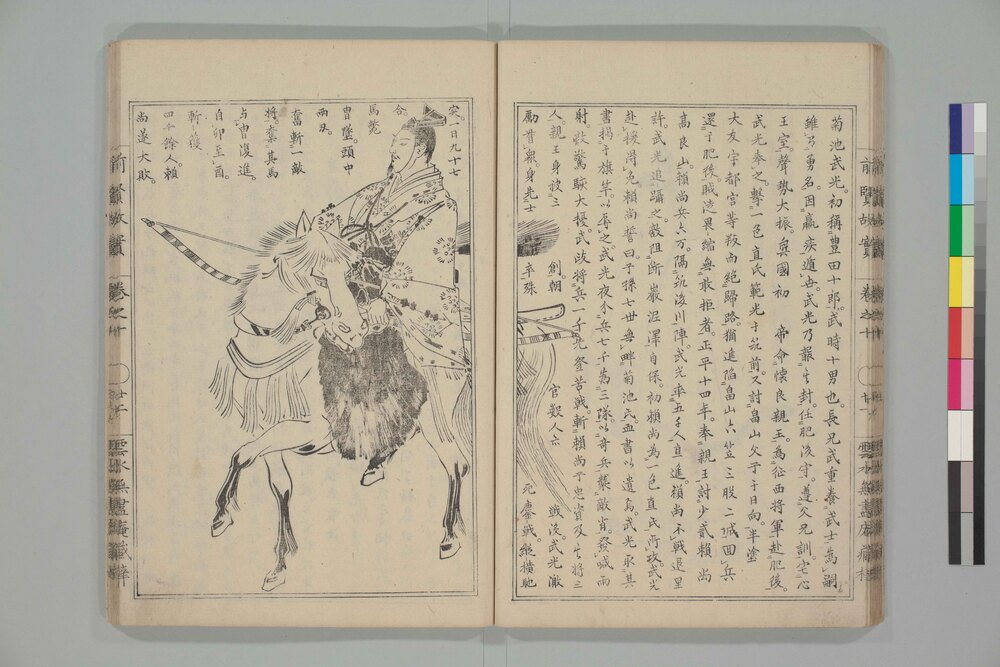 菊池武光。初稱豊田十郎。武時十男也。長兄武重養武士爲嗣
雖有勇名。因羸疾遁世。武光乃報其封。任肥後守。遵父兄訓。宅心
王室。聲勢大振。興國初 帝命懷良親王。爲征西將軍赴肥後。
武光奉之。擊一色直氏範光于筑前。又討畠山父子于日向。半塗
大友宇都宮等叛而絶歸路。猶進陷畠山六笠三股二城。回兵
還于肥後。賊徒畏縮無敢拒者。正平十四年。奉親王討少貳賴尚
高良山。賴尚兵六万。隔筑後川陣。武光率五千人直進。賴尚不戰退里
許。武光追躡之。敵阻断巌涅澤自保。初賴尚爲一色直氏所攻。武光
赴援得免。賴尚誓曰。子孫七世無畔菊池氏。血書以遺焉。武光取其
書掲于旗竿以辱之。武光夜令兵七千爲三隊。以奇兵襲敵背。發喊雨
射。敵驚駭大擾。武政將兵一千先登苦戰。斬賴尚子忠資及其將三
人。親王身被三 創。朝 官數人亡 戰没。武光激
勵首衆。身先士 卒殊 死鏖戰。縱横馳
突。一日九十七
合。
馬斃
冑墜。頭中
兩刄。
奮斬一敵
將。奪其馬
与冑復進。
自卯至酉。
斬獲
四千餘人。賴
尚遂大敗。
前賢故實
卷之十
雲水無盡庵藏梓